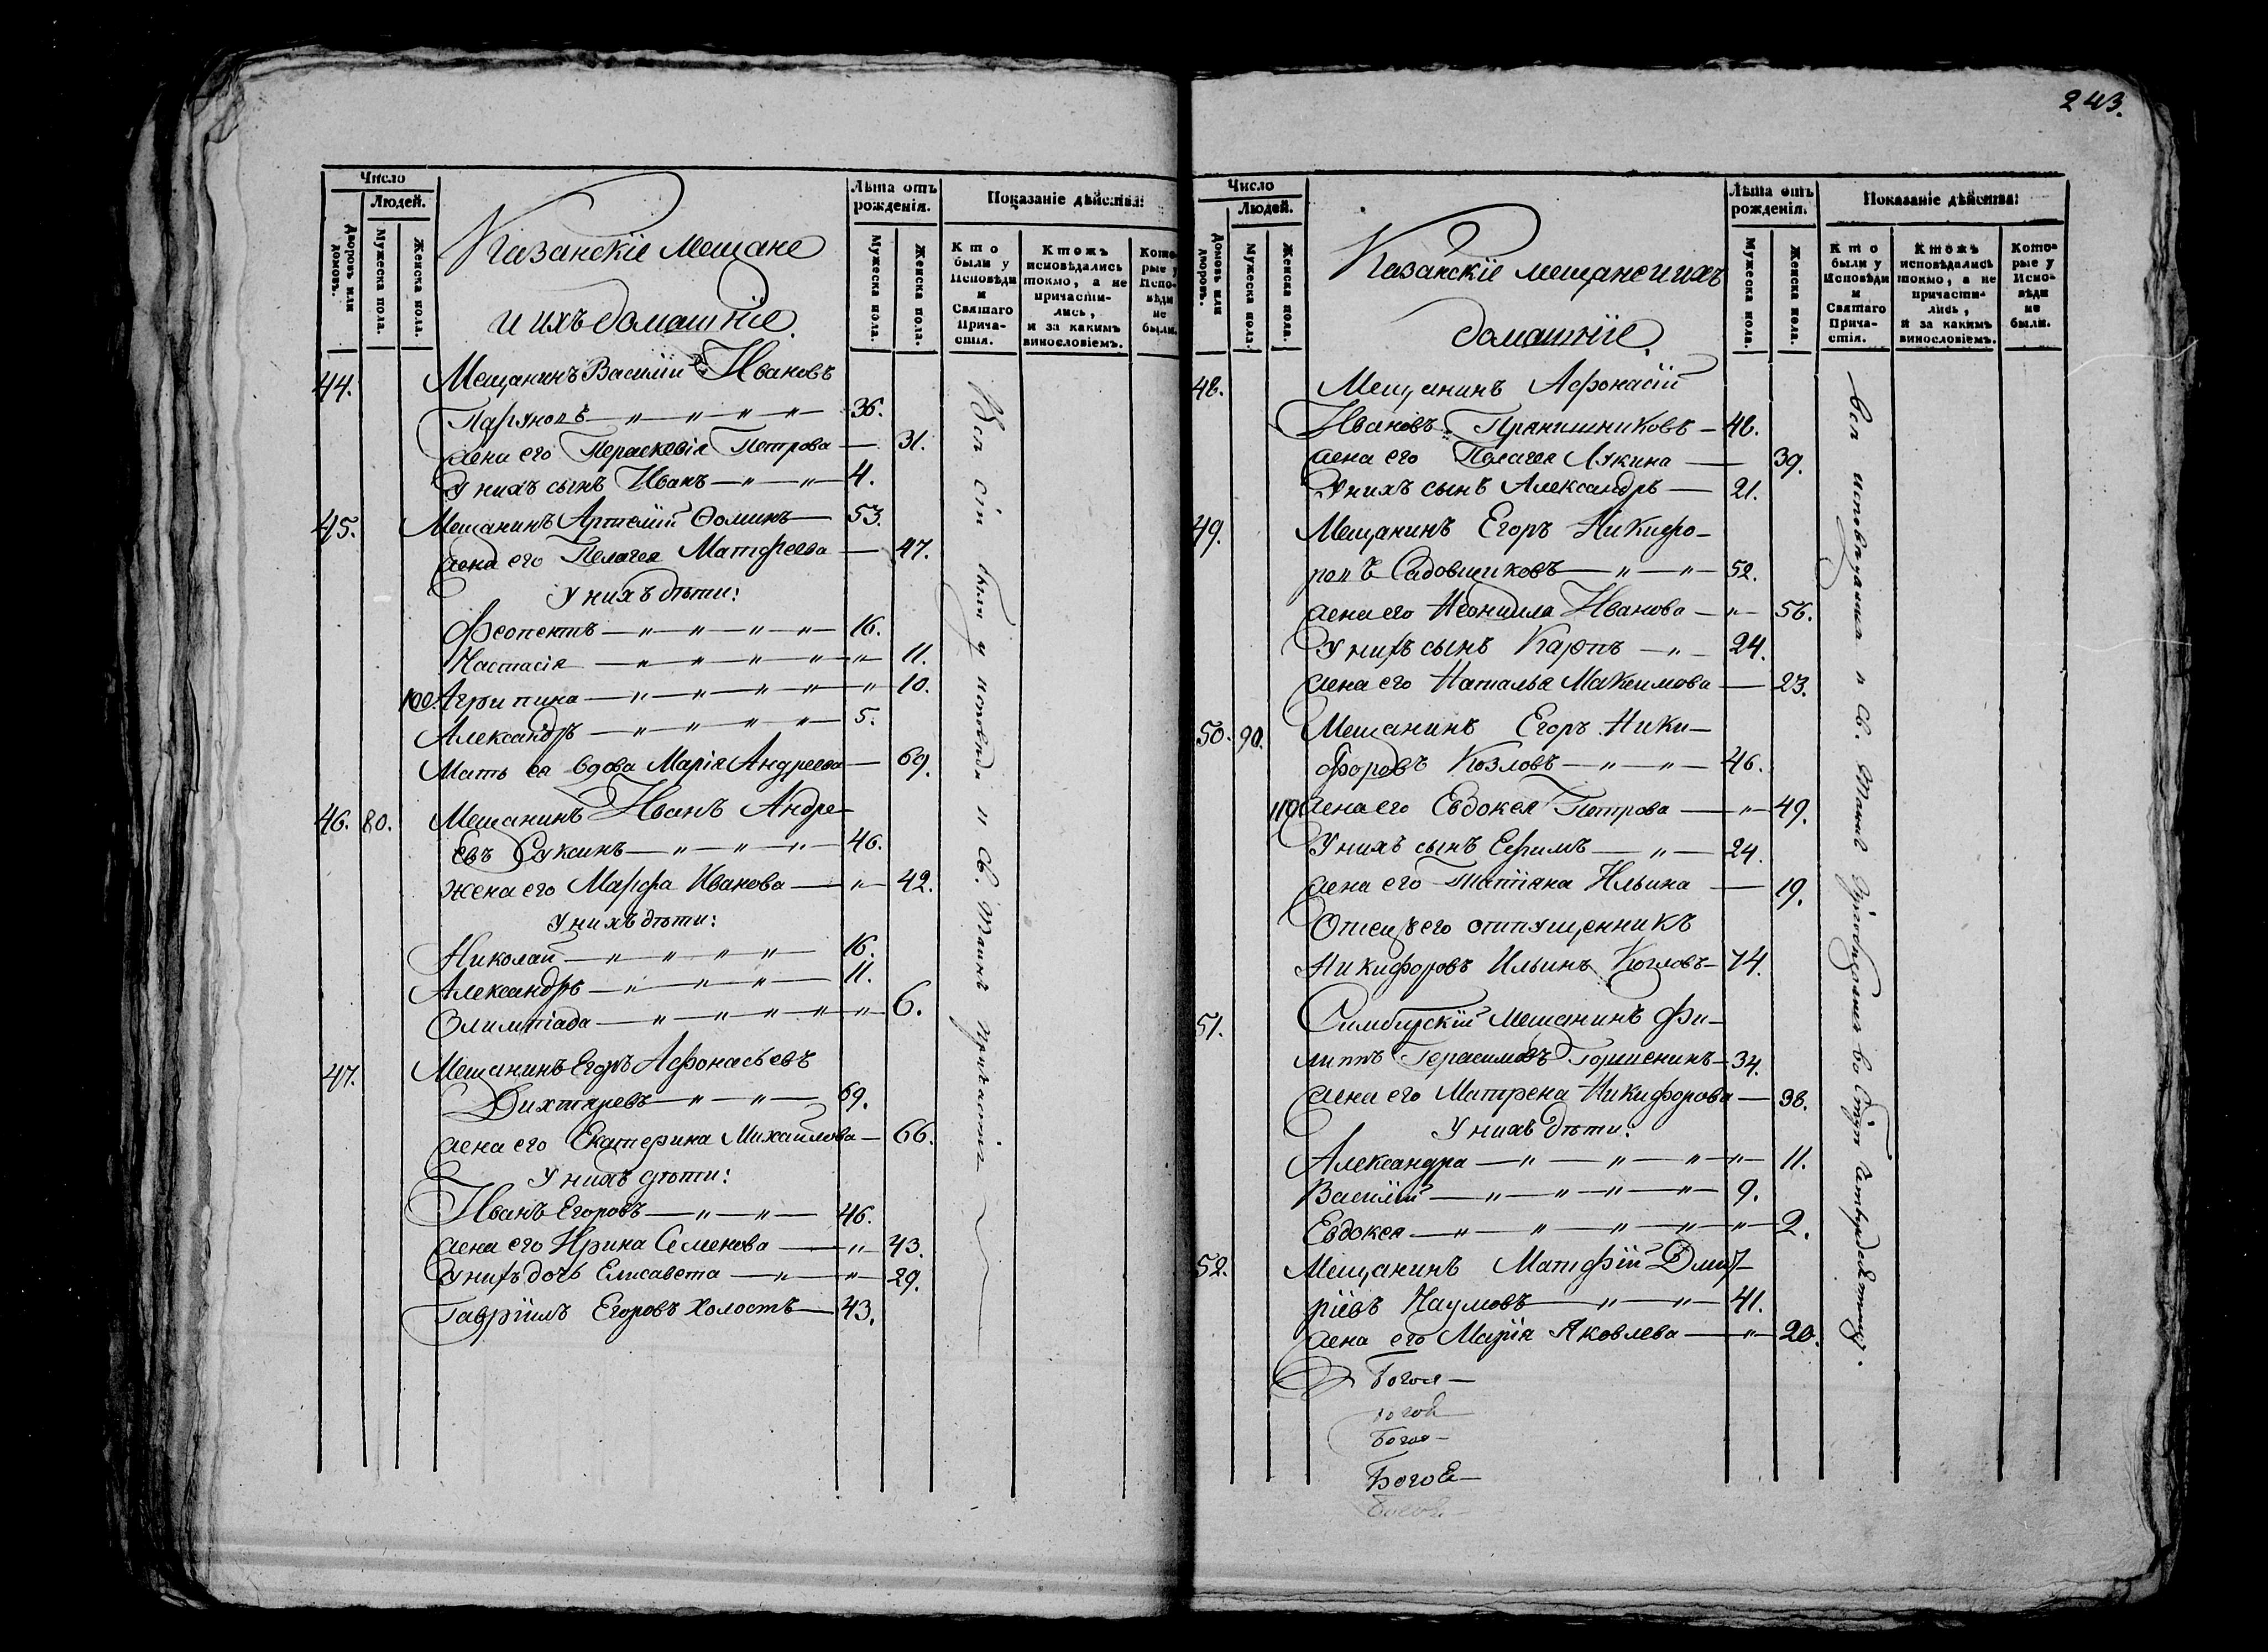 243.
Число
Людей.
Дворовъ или домовъ.
Мужеска пола.
Женска пола.
Казанскіе мещане
и ихъ домашніе.
Лѣта отъ рожденія.
Мужеска пола.
Женска пола.
Показаніе дѣйствія:
Кто были у Исповѣди и Святаго Прича-стія.
Ктожъ исповѣдались токмо, а не причасти-лись, и за какимъ винословіемъ.
Кото-рые у Испо-вѣди не были.
44. Мещанинъ Василій Ивановъ
36.
жена его Перасковія Петрова — 31.
У нихъ сынъ Иванъ — " — " — 4.
45. Мещанинъ Артемій Ѳоминъ — 53.
жена его Пелагея Матфеева — 47.
У нихъ дѣти:
Феопентъ — " — " — " — " — 16.
Настасія — " — " — " — " — " — 11.
100. Агрипина — " — " — " — " — " — 10.
Александръ — " — " — " — " — 5.
Мать ея вдова Марія Андреева — 69.
46. 80. Мещанинъ Иванъ Андре-
евъ Саксинъ — " — " — " — 46.
жена его Марфа Иванова — " — 42.
У нихъ дѣти:
Николай — " — " — " — " — 16.
Александръ — " — " — " — 11.
Олимпіада — " — " — " — " — " — 6.
47. Мещанинъ Егоръ Афонасьевъ
Дихтяревъ — " — " — 69.
жена его Екатерина Михайлова — 66.
У нихъ дѣти:
Иванъ Егоровъ — " — " — 46.
жена его Ирина Семенова — " — 43.
У нихъ дочь Елисавета — " — " — 29.
Гавріилъ Егоровъ холостъ — 43.
Всѣ сіи были у исповѣди и Св. Таинъ причастія
Число
Людей.
Домовъ или дворовъ.
Мужеска пола.
Женска пола.
Казанскіе мещане и ихъ
домашніе
Лѣта отъ рожденія.
Мужеска пола.
Женска пола.
Показаніе дѣйствія:
Кто были у Исповѣди и Святаго Прича-стія.
Ктожъ исповѣдались токмо, а не причасти-лись, и за какимъ винословіемъ.
Кото-рые у Испо-вѣди не были.
48. Мещанинъ Афонасій
Ивановъ Прянишниковъ — 48.
жена его Пелагея Лукина — 39.
У нихъ сынъ Александръ — 21.
49. Мещанинъ Егоръ Никифо-
ровъ Садовщиковъ — " — " — 52.
жена его Неонилла Иванова — " — 56.
У нихъ сынъ Карпъ — " — 24.
жена его Наталья Максимова — 23.
50. 90. Мещанинъ Егоръ Ники-
форовъ Козловъ — " — " — 46.
110. жена его Евдокея Петрова — " — 49.
У нихъ сынъ Ефимъ — " — 24.
жена его Татіана Ильина — 19.
Отецъ его отпущенникъ
Никифоровъ Ильинъ Козловъ — 74.
51. Симбирскій Мещанинъ Фи-
липпъ Герасимовъ Горшенинъ — 34.
жена его Матрена Никифорова — 38.
У нихъ дѣти:
Александра — " — " — " — " — 11.
Василій — " — " — " — " — 9.
Евдокея — " — " — " — " — " — 2.
52. Мещанинъ Матфій Дмит-
ріевъ Наумовъ — " — " — 41.
жена его Марія Яковлева — " — 20.
Всѣ исповѣдались и Св. Таинъ
Богоя—
Богоя—
Богоя—
БогоЕ—